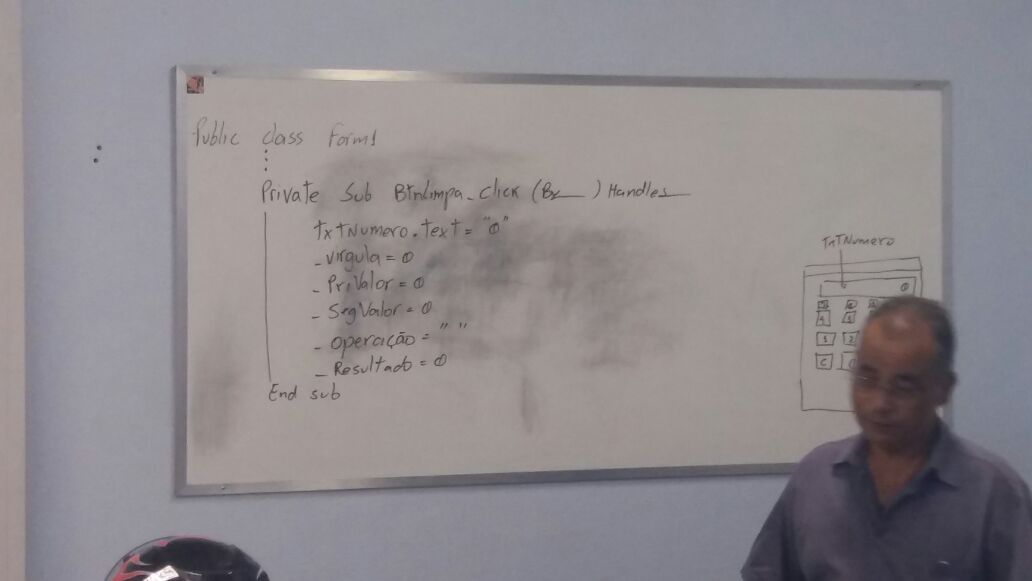 Public class Form1
Private Sub Btnlimpa_click (By___) Handles___
txtNumero.text = "0"
_virgula = 0
_PriValor = 0
_SegValor = 0
_operação = " "
_Resultado = 0
End sub
TxTNumero
0
C